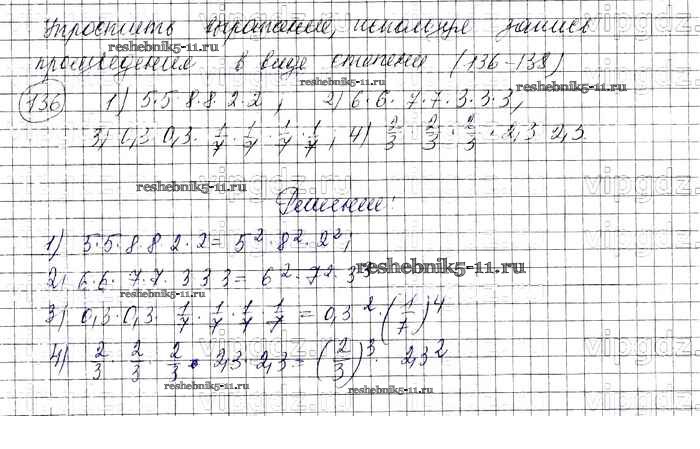 Упростить выражение, используя запись
произведения в виде степени (136-138)
136 1) 5·5·8·8·2·2; 2) 6·6·7·7·3·3·3,
3) 0,3·0,3·1/7·1/7·1/7·1/7; 4) 2/3·2/3·2/3·2,3·2,3.
Решение:
1) 5·5·8·8·2·2=5²·8²·2²;
2) 6·6·7·7·3·3·3=6²·7²·3³
3) 0,3·0,3·1/7·1/7·1/7·1/7=0,3²·(1/7)⁴
4) 2/3·2/3·2/3·2,3·2,3=(2/3)³·2,3²
reshebnik5-11.ru
reshebnik5-11.ru
reshebnik5-11.ru
reshebnik5-11.ru
reshebnik5-11.ru
reshebnik5-11.ru
reshebnik5-11.ru
reshebnik5-11.ru